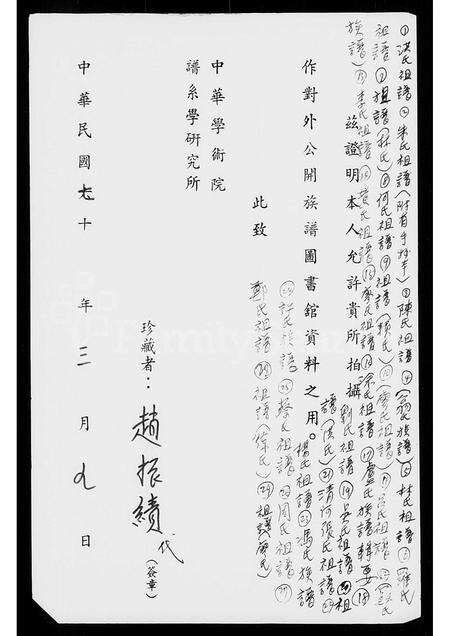 ①洪氏祖譜②朱氏祖譜(附有手抄本)③陳氏祖譜④(翁)氏族譜⑤林氏祖譜⑥羅氏
祖譜⑦祖譜(林氏)⑧何氏祖譜⑨祖譜
族譜
茲證明本人允許貴所拍攝
李氏祖譜 黃氏祖譜 ⑯涂氏祖譜⑰盧氏族譜輯要⑱
劉氏祖譜⑲吳氏祖譜⑳祖
譜(洪氏)㉑清河張氏祖譜㉒
楊氏祖譜㉓馮氏族譜
作對外公開族譜圖書館資料之用。
㉔許氏族譜㉕蔡氏祖譜㉖周氏祖譜㉗
鄭氏祖譜㉘祖譜(徐氏)㉙祖譜(廖氏)
此致
中華學術院
譜系學研究所
珍藏者：趙振績代(簽章)
中華民國七十年三月九日